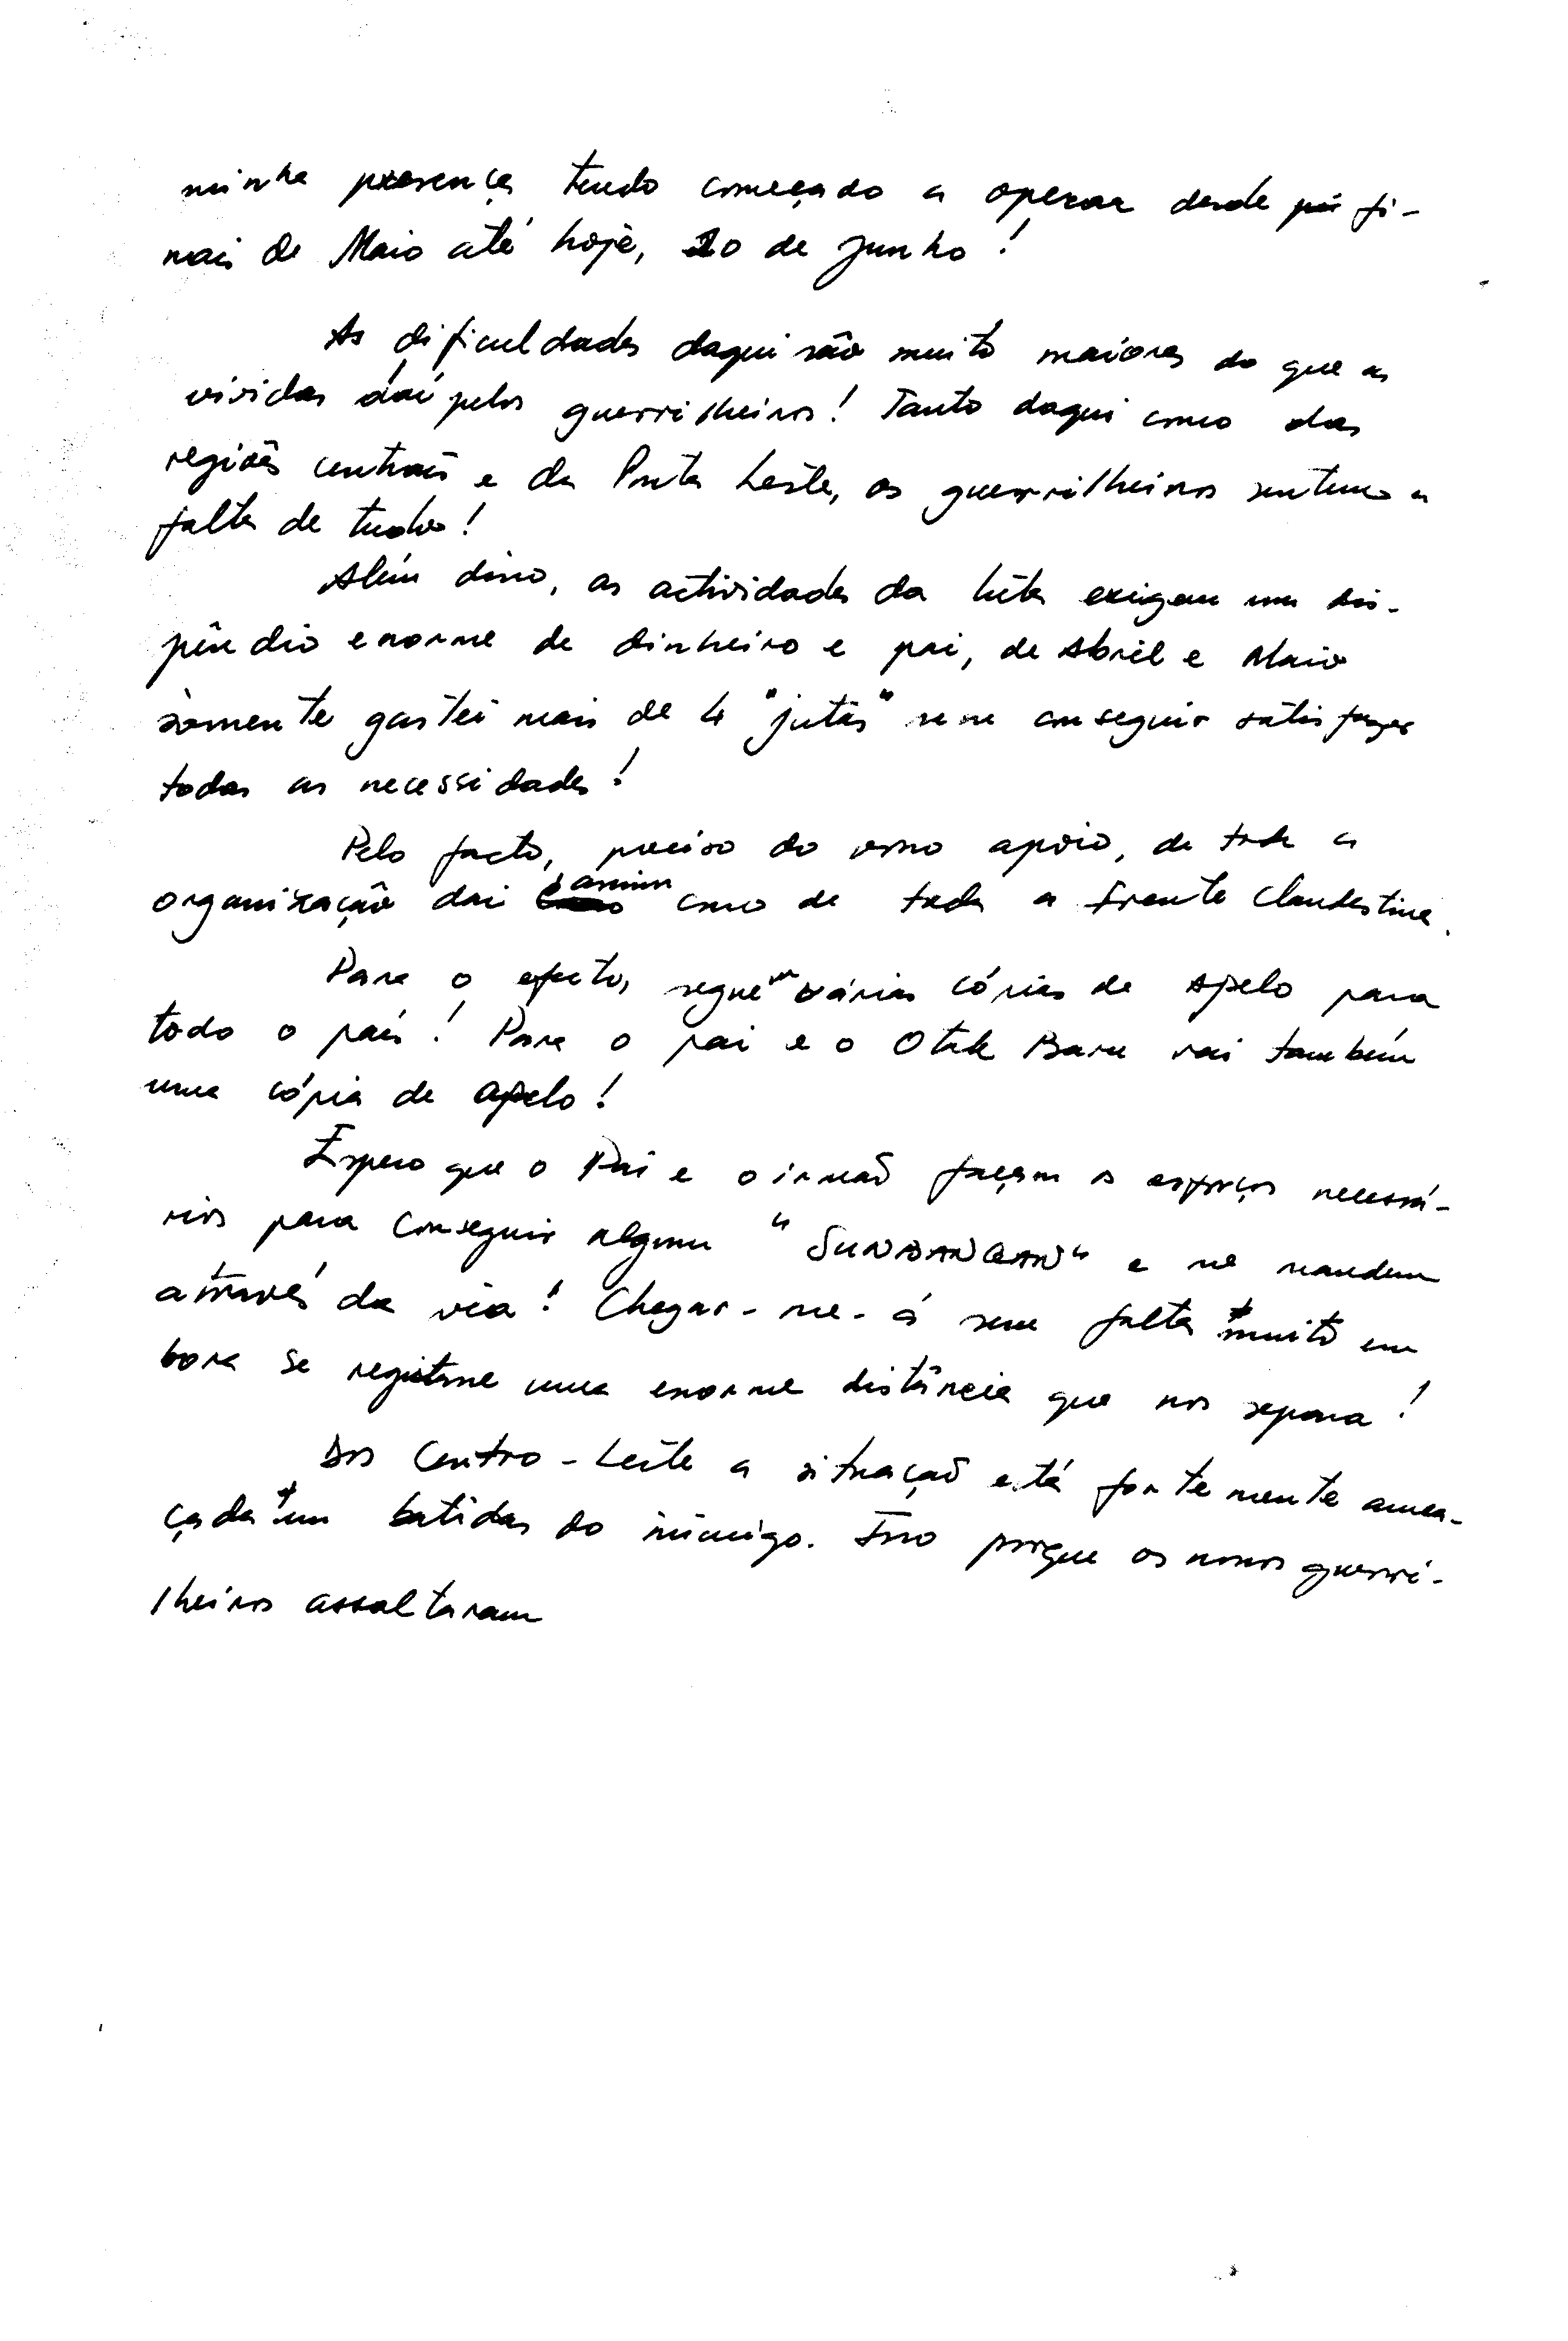 minha presença tendo começado a operar desde fi-
nais de Maio até hoje, 20 de Junho!
As dificuldades daqui são muito maiores do que as
vividas daí pelos guerrilheiros! Tanto daqui como das
regiões centrais e da Ponta Leste, os guerrilheiros sentem a
falta de tudo!
Além disso, as actividades da luta exigem um dis-
pêndio enorme de dinheiro e pai, de Abril e Maio
sòmente gastei mais de 4 "jutas" sem conseguir satisfazer
todas as necessidades!
Pelo facto, preciso do vosso apoio, de toda a
organização daí assim como de toda a Frente Clandestina.
Para o efeito, seguem várias cópias de Apelo para
todo o país! Para o pai e o Otak Baru vai também
uma cópia de apelo!
Espero que o Pai e o irmão façam os esforços necessá-
rios para conseguir algum "SUNBANGAN" e me mandem
através da via! Chegar-me-á sem falta muito em
bora se registasse uma enorme distância que nos separa!
Dos Centro-Leste a situação está fortemente amea-
çada em batidas do inimigo. Isso porque os nossos guerri-
lheiros assaltaram